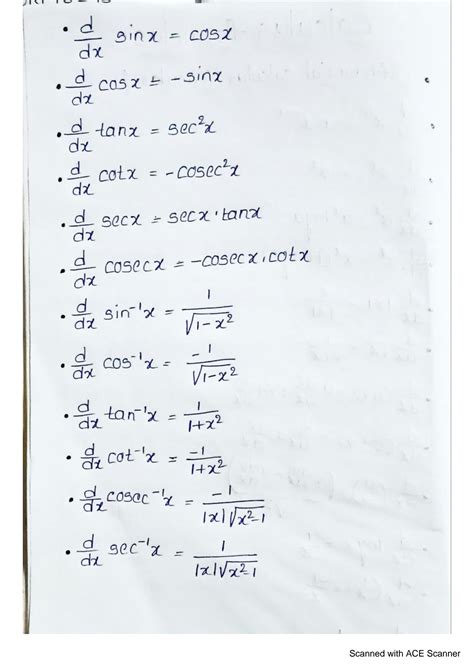 • d/dx sinx = cosx
• d/dx cosx = -sinx
• d/dx tanx = sec²x
• d/dx cotx = -cosec²x
• d/dx secx = secx·tanx
• d/dx cosecx = -cosecx·cotx
• d/dx sin⁻¹x = 1/√(1-x²)
• d/dx cos⁻¹x = -1/√(1-x²)
• d/dx tan⁻¹x = 1/(1+x²)
• d/dx cot⁻¹x = -1/(1+x²)
• d/dx cosec⁻¹x = -1/(|x|√(x²-1))
• d/dx sec⁻¹x = 1/(|x|√(x²-1))
Scanned with ACE Scanner